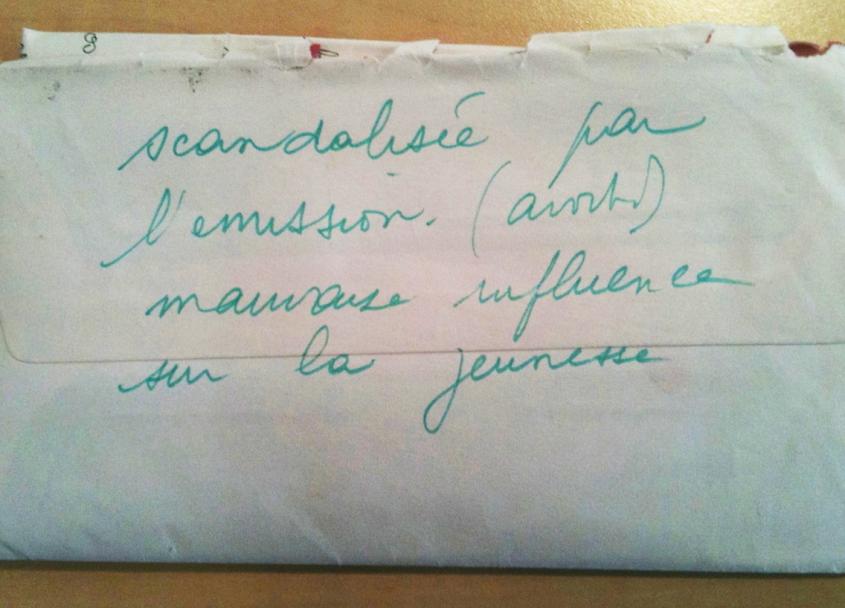 scandalisée par
l'emission. (avort)
mauvaise influence
sur la jeunesse